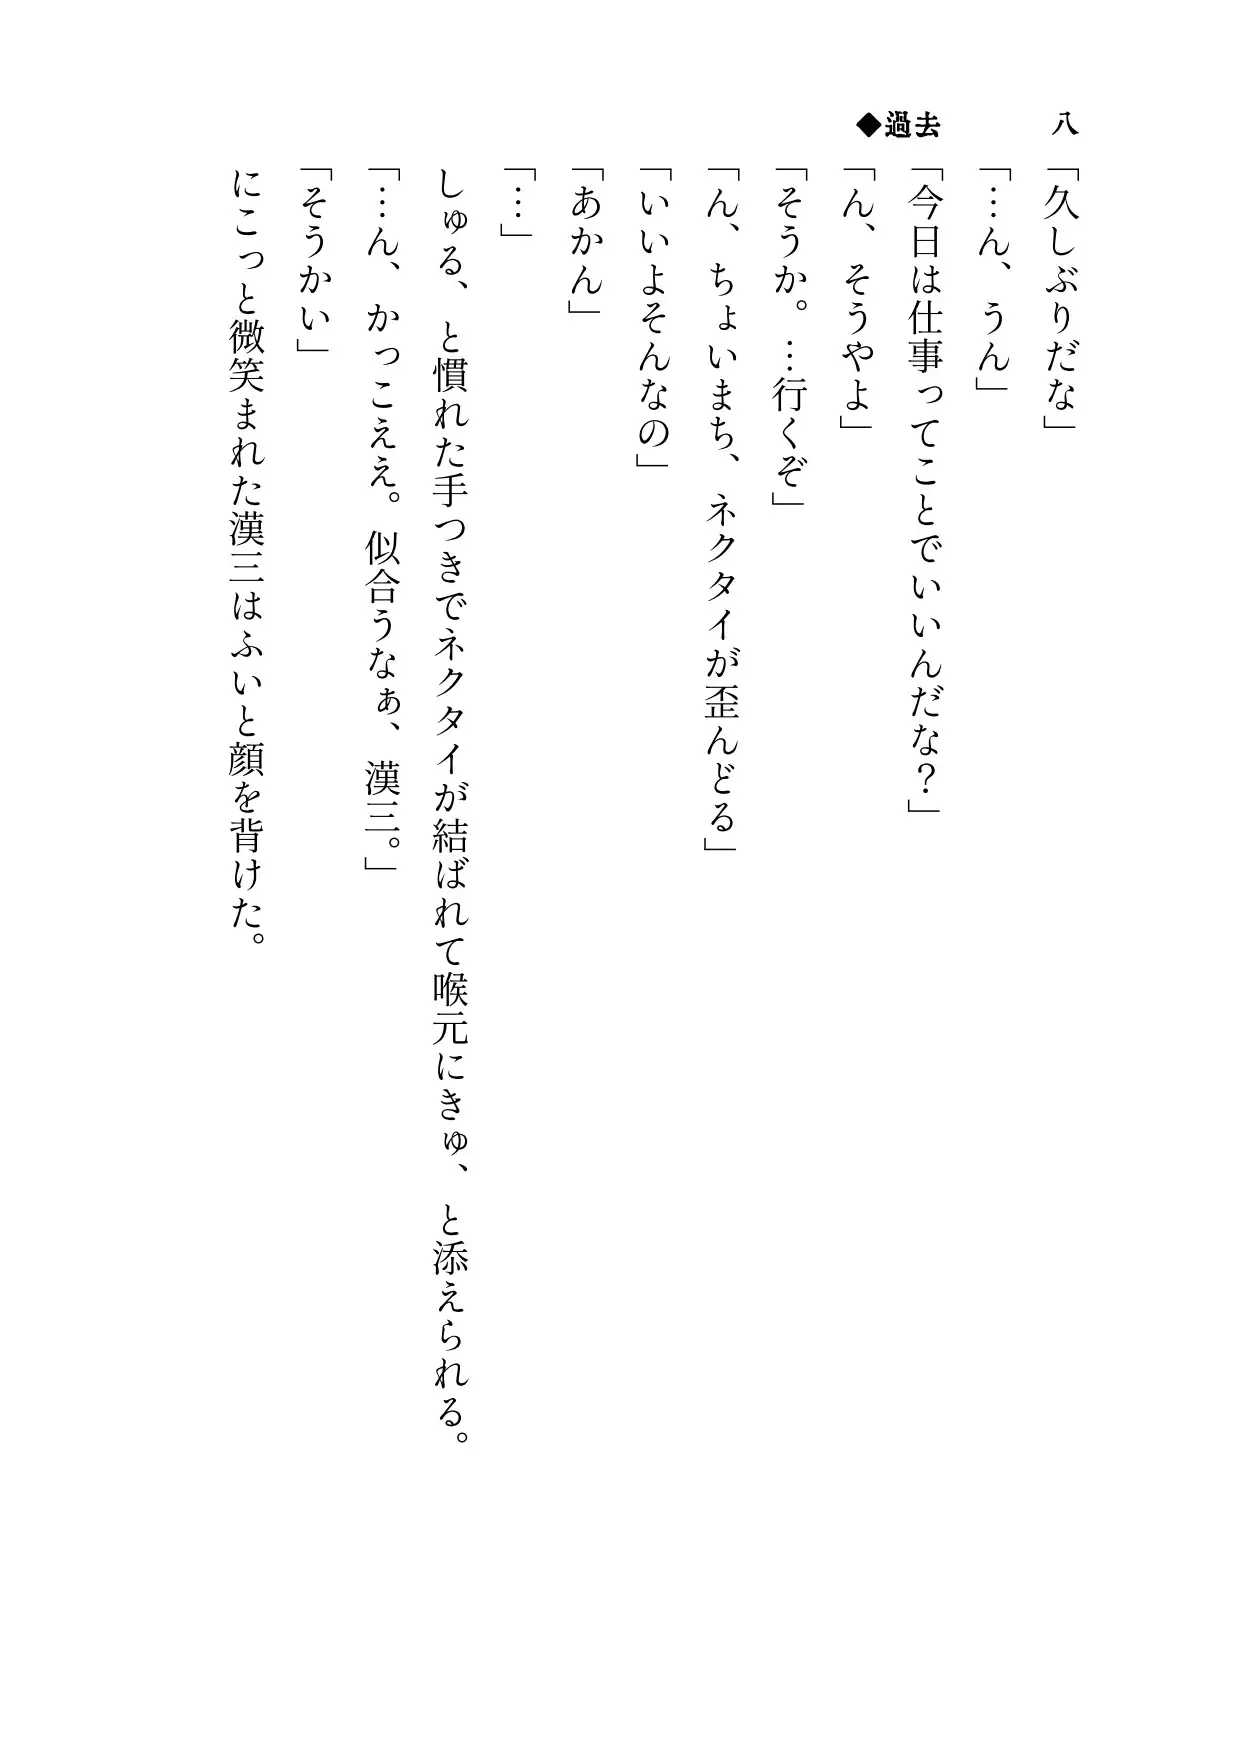 八
◆過去
「久しぶりだな」
「…ん、うん」
「今日は仕事ってことでいいんだな？」
「ん、そうやよ」
「そうか。…行くぞ」
「ん、ちょいまち、ネクタイが歪んどる」
「いいよそんなの」
「あかん」
「…」
しゅる、と慣れた手つきでネクタイが結ばれて喉元にきゅ、と添えられる。
「…ん、かっこええ。似合うなぁ、漢三。」
「そうかい」
にこっと微笑まれた漢三はふいと顔を背けた。